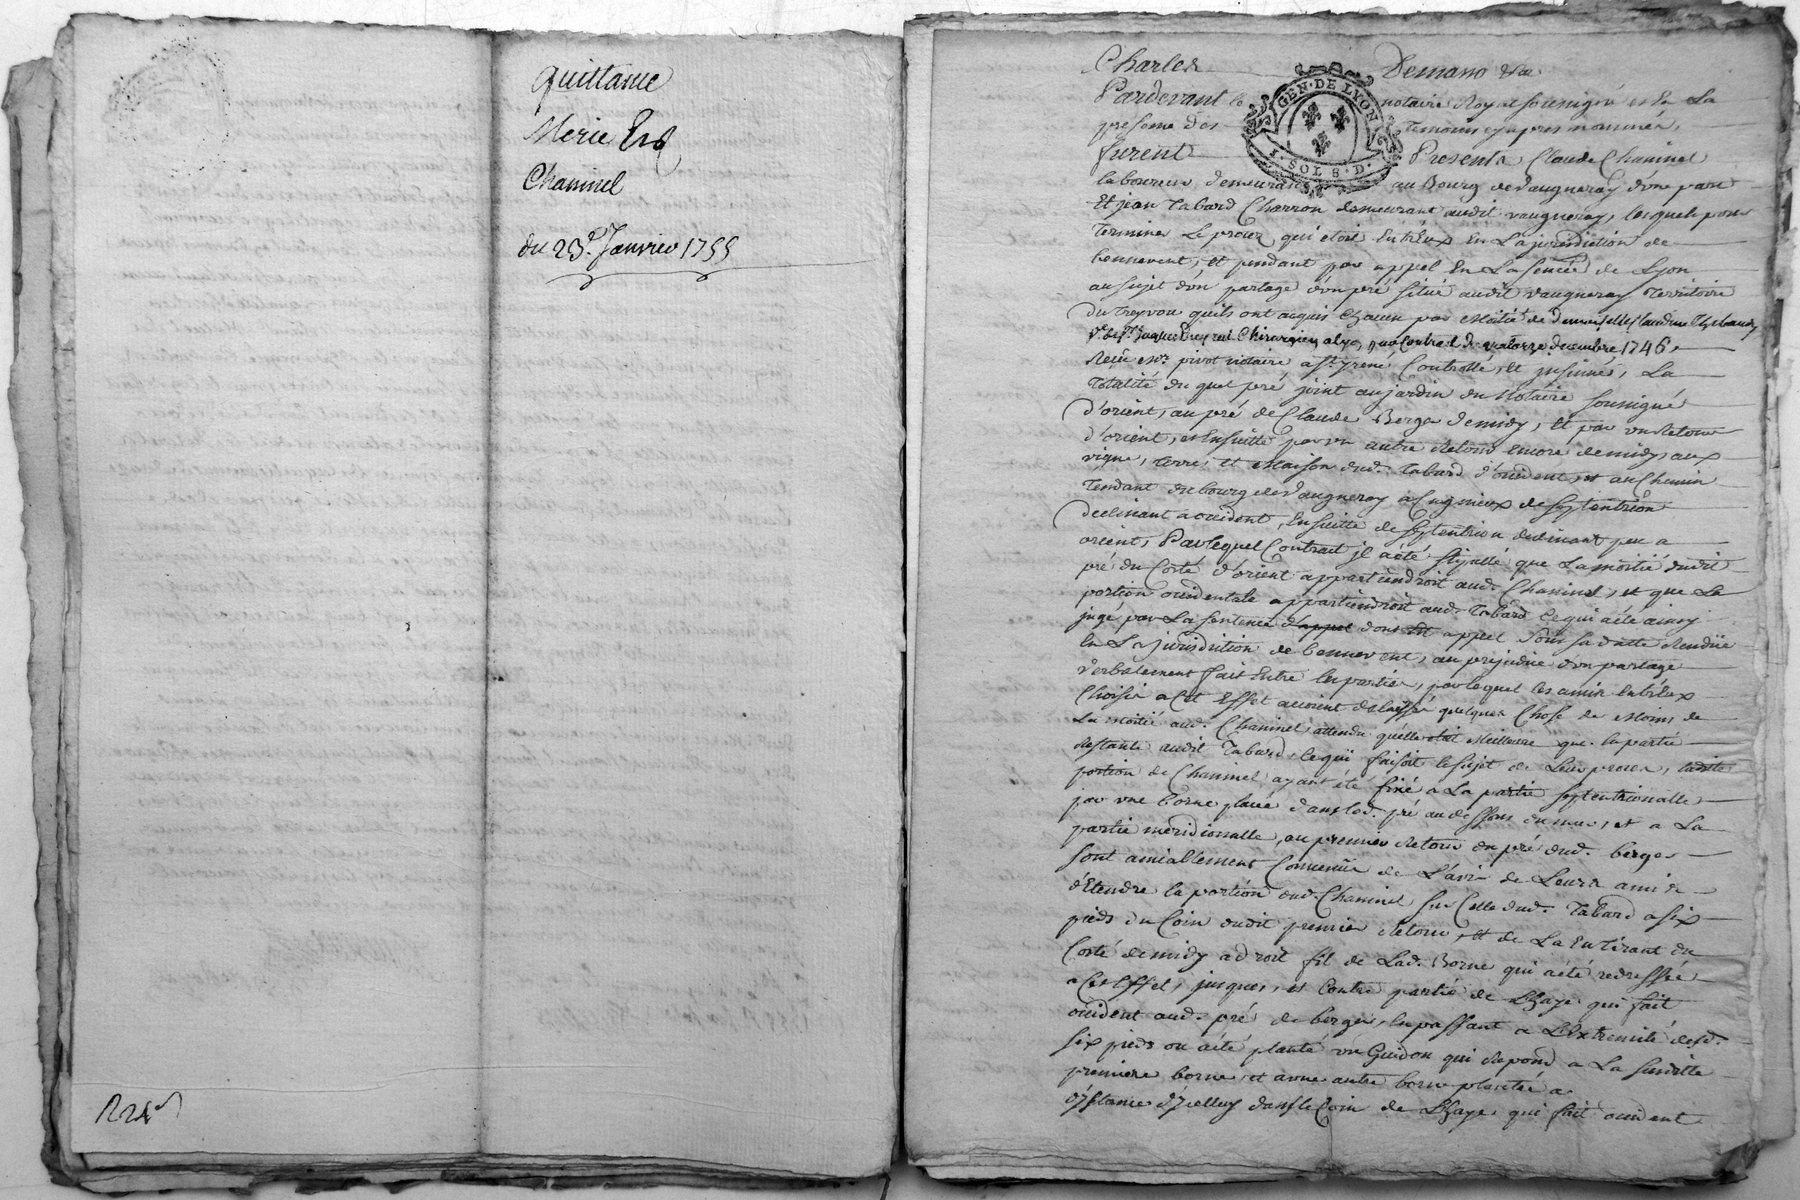 Quittance
Merie
Chaminel
du 23e. Janvier 1755
Charles Demano
GEN. DE LYON
1. SOL 8. D.
Pardevant le notaire Royal soussigné et En La
presence des temoins cy apres nommés,
furent Presents Claude Chaminel
laboureur demeurant au Bourg de Vaugneray d'une part
Et jean Tabard Charron demeurant audit vaugneray, lesquels pour
terminer Le procez qui etoit Entr'eux En La jurisdiction de
bennevent, et pendant par appel En La senécé de Lyon
au sujet d'un partage d'un pré situé audit vaugneray territoire
du treyvou quils ont acquis chacun par Moitié de demoiselle Claudine
Chirurgien a lyon, par Contract du quatorze decembre 1746,
Reçu Me pivot notaire a St. yrené Controllé, et jnsinué, La
totalité du quel pré joint au jardin du Notaire soussigné
d'orient, au pré de Claude Berger de midy, et par un Retour
d'orient, et Ensuitte par un autre Retour Encore de midy, aux
vigne, terre, et Maison dud. Tabard d'occident, et au Chemin
tendant du bourg de Vaugneray a de septentrion
declinant a occident, Ensuitte de septentrion declinant peu a
orient, Par lequel Contract jl a eté stipullé que La moitié dudit
pré du Coté d'orient appartiendroit aud. Chaminel, et que La
portion occidentale appartiendroit aud. Tabard ce qui a été ainsy
jugé par La sentence d'appel dont est appel sous sa datte Rendüe
En La jurisdiction de bennevent, au prejudice d'un partage
verbalement fait Entre les parties, par lequel les amis Entr'eux
Choisis a Cet Effet auroient delaissé quelque Chose de Moins de
La moitié aud. Chaminel, attendu qu'elle etoit Meilleure que la partie
Restante audit Tabard, ce qui faisoit le sujet de Leur procez, ladite
portion de Chaminel ayant été fixé a La partie septentrionalle
par une borne placée dans led. pré au dessous du mur, et a La
partie meridionalle, au premier Retour du pré dud. berger
sont amiablement Convenüs de L'avis de Leurs amis
d'Etendre la portion dud. Chaminel sur Celle dud. Tabard a six
pieds du Coin dudit premier Retour, et de La En tirant du
Coté de midy a droit fil de Lad. Borne qui a été redressée
a Cet Effet, jusques, et Contre partie de L'haye qui fait
occident aud. pré de berger, En passant a L'extremité desd.
six pieds ou a été planté un Guidon qui repond a La susditte
premiere borne, et a une autre borne plantée a
distance d'jcelluy dans le Coin de L'haye qui fait occident